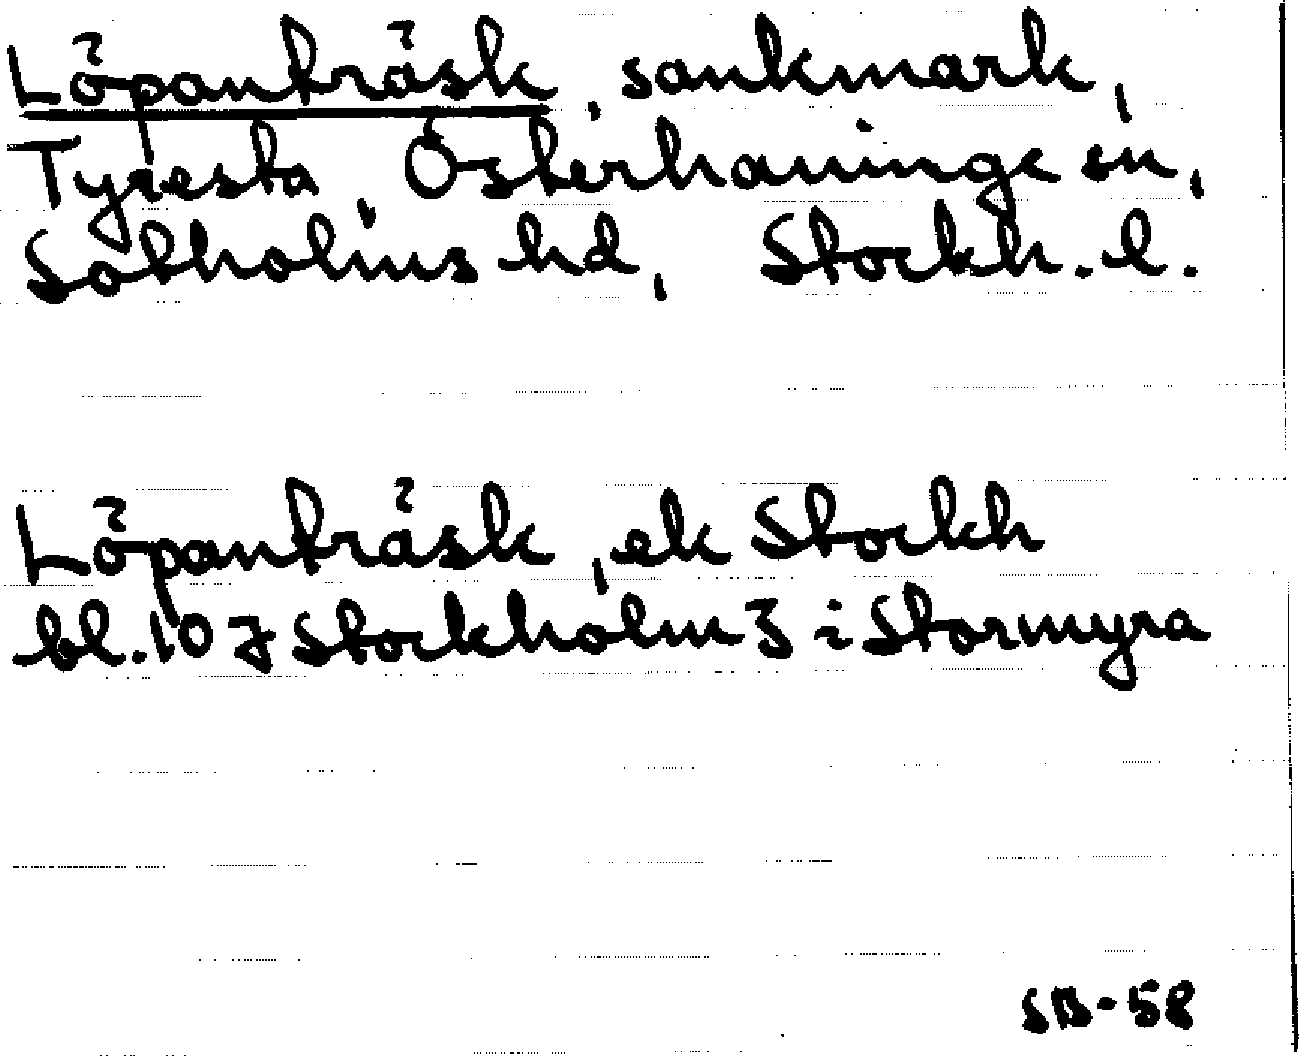 Löpanträsk, sankmark,
Tyresta, Österhaninge sn,
Sotholms hd, Stockh. l.
Löpanträsk, ek Stockh
bl. 10 J Stockholm 3 i Stormyra
SB-58